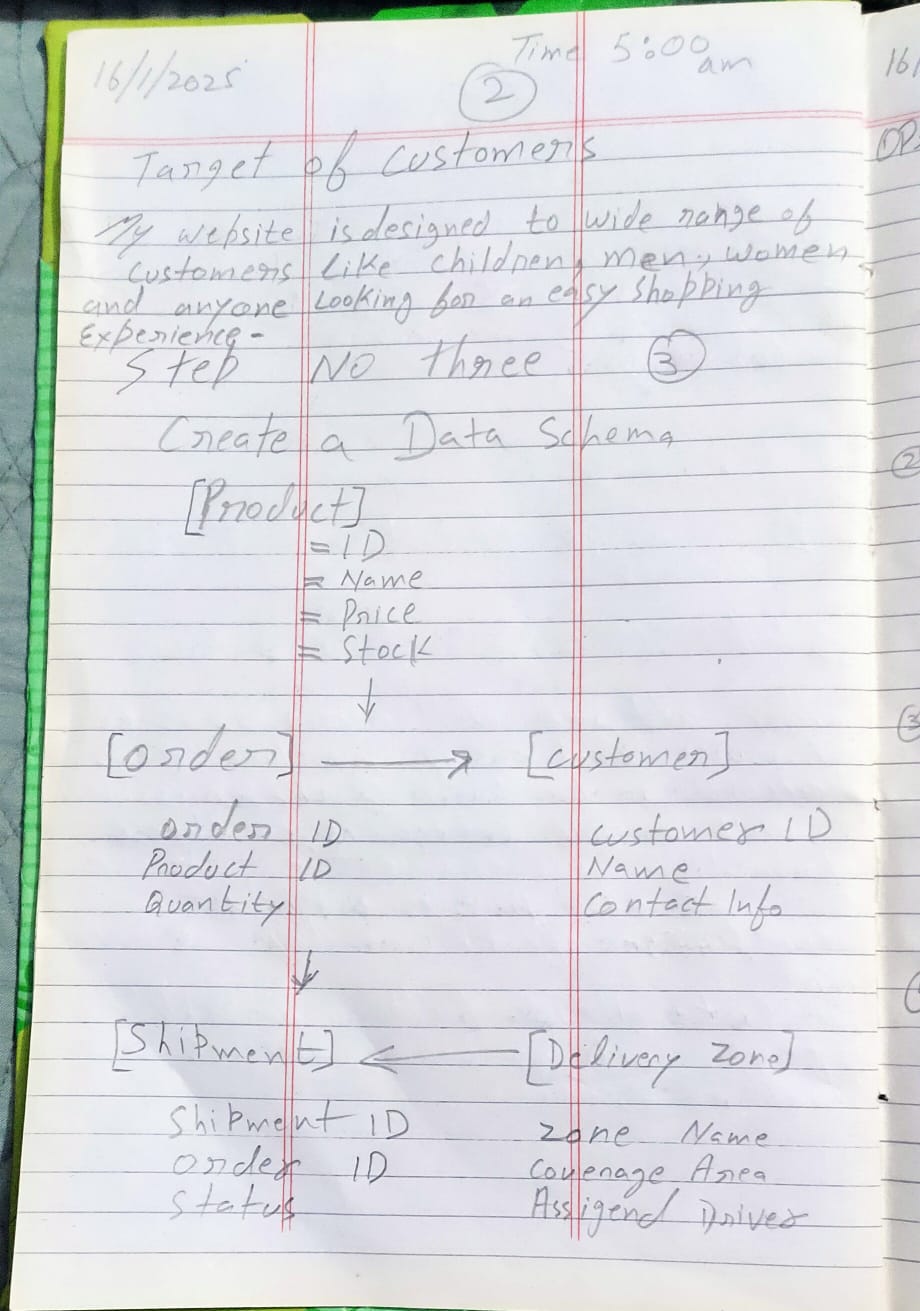 16/1/2025 Time 5:00 am
2
Target of Customers
My website is designed to wide range of
Customers Like children, men, women
and anyone Looking for an easy Shopping
Experience-
Step No three 3
Create a Data Schema
[Product]
= ID
= Name
= Price
= Stock
↓
[order] → [customer]
order ID customer ID
Product ID Name
Quantity Contact Info
↓
[Shipment] ← [Delivery Zone]
Shipment ID Zone Name
order ID Coverage Area
Status Assigend Driver
16/
2
3